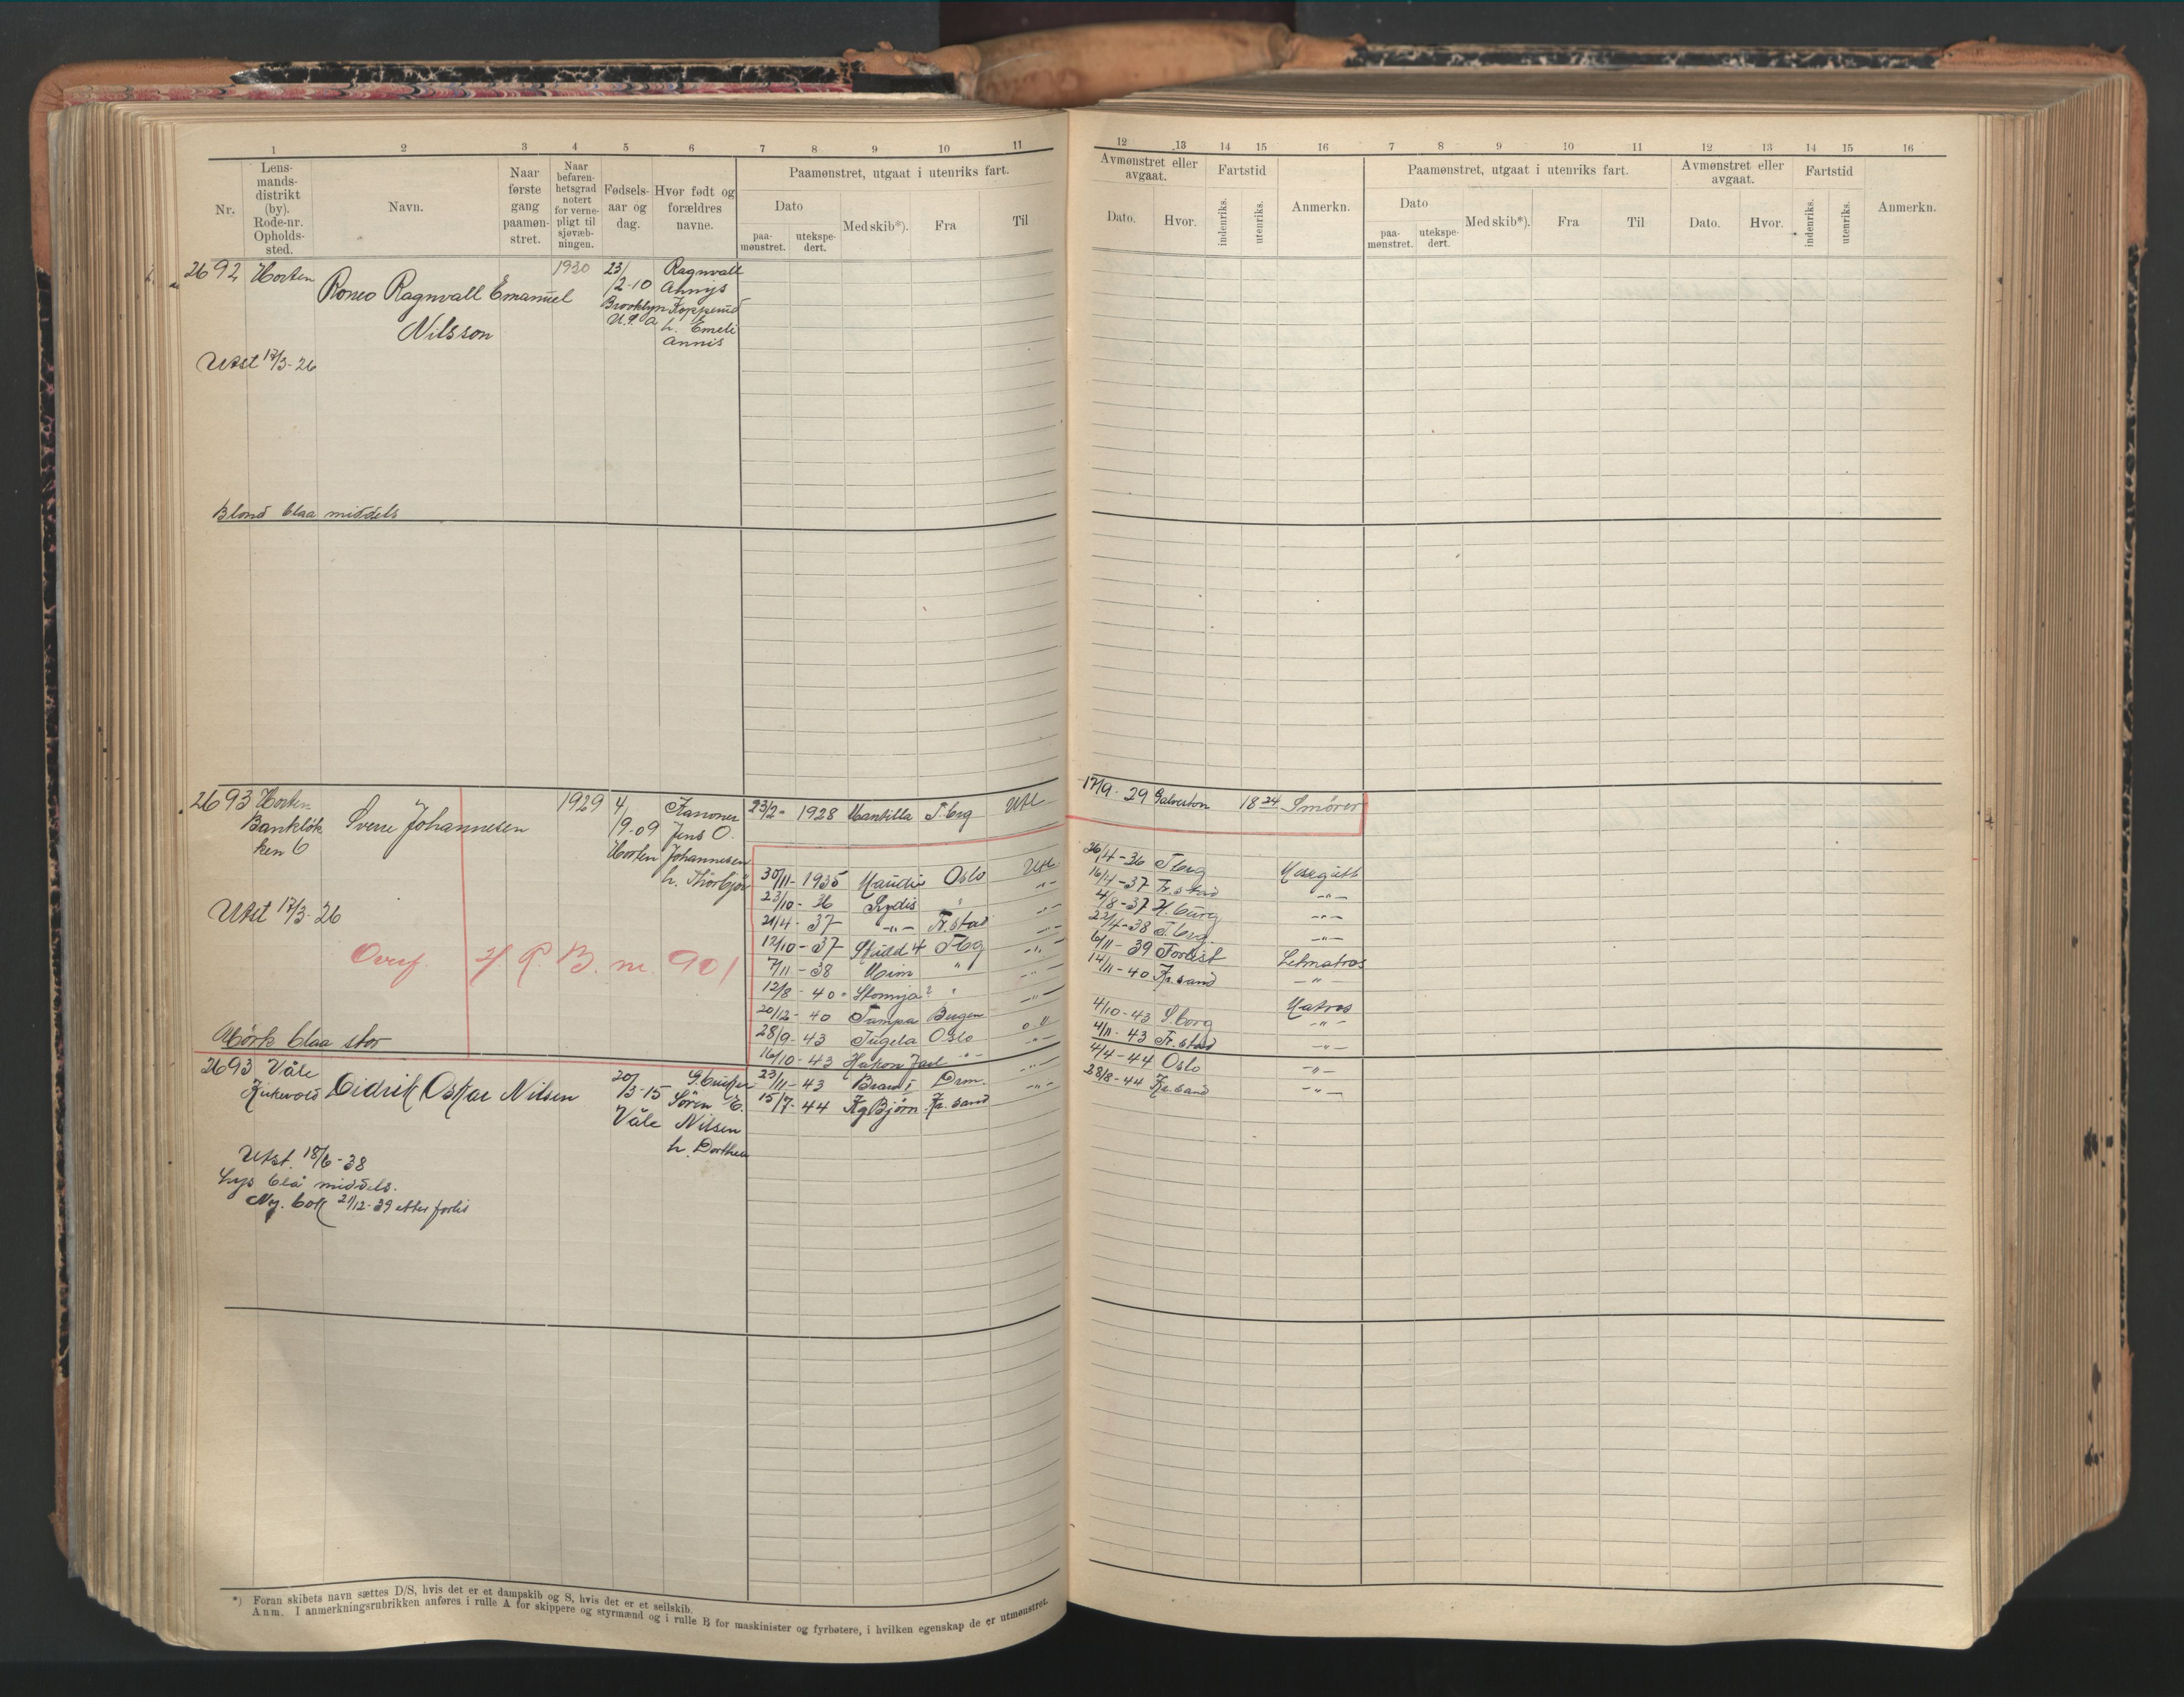 1 2 3 4 5 6 7 8 9 10 11
Nr.
Lens-
mands-
distrikt
(by).
Rode-nr.
Opholds-
sted.
Navn.
Naar
første
gang
paamøn-
stret.
Naar
befaren-
hetsgrad
notert
for verne-
pligt til
sjøvæb-
ningen.
Fødsels-
aar og
dag.
Hvor født og
forældres
navne.
Paamønstret, utgaat i utenriks fart.
Dato
paa-
mønstret.
utekspe-
dert.
Med skib*).
Fra
Til
2692 Horten
Romeo Ragnvall Emanuel
Nilsson
1930
23/
2-10
Brooklyn
U.S.A
Ragnvall
Kopperud
h. Emeli
Annis
Utst 17/3-26
Blond blaa middels
2693 Horten
Bankløk
ken 6
Sverre Johannesen
1929
4/
9-09
Horten
Kanoner
Jens O.
Johannesen
h. Thorbjør
Utst 17/3-26
Overf. H. P. B. nr. 901
Mørk blaa stor
23/2- 1928 Mantilla T.berg Utl
30/11- 1935 Maudie Oslo Utl
23/10- 36 Lydis " -"-
21/4- 37 -"- Fr.stad -"-
12/10- 37 Skudd 4 Tbg -"-
7/11- 38 Mim " -"-
12/8- 40 Stomya? " -"-
20/12- 40 Tampa Bergen
28/9- 43 Tugela Oslo
16/10- 43 Hakon Jarl -"-
23/11- 43 Brand I Drm. -"-
15/7- 44 Kg Bjørn Kr.sand -"-
2693 Våle
Kirkevold
Didrik Oskar Nilsen
20/
3-15
Våle
G.bruker
Søren E.
Nilsen
h. Dorthea
Utst. 18/6-38
Lys blå middels.
Ny. bok 21/12-39 etter forlis
*) Foran skibets navn sættes D/S, hvis det er et dampskib og S, hvis det er et seilskib.
Anm. I anmerkningsrubrikken anføres i rulle A for skippere og styrmænd og i rulle B for maskinister og fyrbøtere, i hvilken egenskap de er utmønstret.
12 13 14 15 16 7 8 9 10 11 12 13 14 15 16
Avmønstret eller
avgaat.
Dato. Hvor.
Fartstid
indenriks.
utenriks.
Anmerkn.
Paamønstret, utgaat i utenriks fart.
Dato
paa-
mønstret.
utekspe-
dert.
Med skib*).
Fra
Til
Avmønstret eller
avgaat.
Dato. Hvor.
Fartstid
indenriks.
utenriks.
Anmerkn.
17/9- 29 Galveston 18 24 Smører
26/4-36 T.berg Messegutt
16/4-37 Fr.stad -"-
4/8-37 H.burg -"-
22/4-38 T.berg -"-
6/11- 39 Forlist Letmatros
14/11-40 Kr.sand -"-
4/10-43 S.borg Matros
4/11- 43 Fr.stad -"-
4/4-44 Oslo -"-
28/8-44 Kr.sand -"-